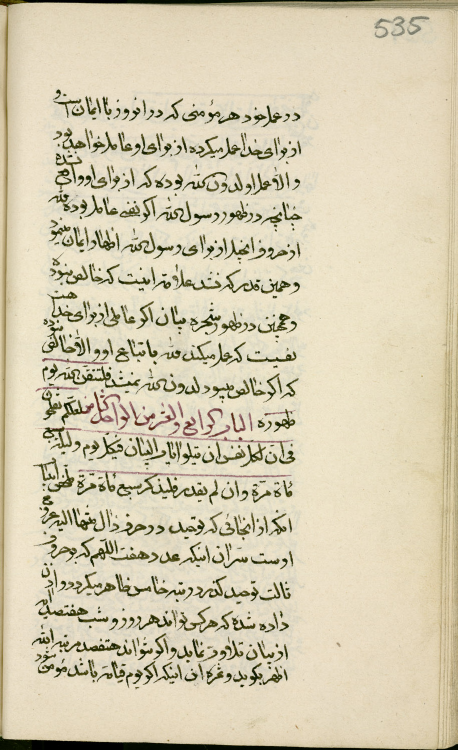 535
در عمل خود هر مؤمنی که در انروز با ایمان است و
از برای خدا عمل میکرده از برای او عامل خواهد بود
والا عمل او لدون الله بوده که از برای او واقع نشده
چنانچه در ظهور رسول الله اگر نفسی عامل بوده لله
از حروف انجیل از برای رسول الله اظهار ایمان مینمود
و همین قدر که نشد علامت اینست که خالص نبوده
و همچنین در ظهور شجره بیان اگر عاملی از برای خدا هست
نفسیست که عمل میکند لله باتباع او والا خالص نبوده
که اگر خالص میبود لدون الله نمیشد فلتتقن الله یوم
ظهوره الباب الرابع والعشر من الواحد الثامن لعلکم تفلحون
فی ان لکل نفس ان یتلو اایات البیان فی کل یوم ولیلة سبع
مأة مرة وان لم یقدر فلیذکر سبع مأة مرة
انکه از انجائی که توحید در حرف ذال منتها الیه عروج
اوست سر ان اینکه عدد هفت اللهم که بحروف
ثالث توحید کند در رتبه خامس ظاهر میگردد و اذن
داده شده که هر کس تواند هر روز و شب هفتصد ایه
از بیان تلاوت نماید و اگر نتواند هفتصد مرتبه الله
اظهر بگوید و ثمره ان اینکه اگر یوم قیامة باشد مؤمن شود